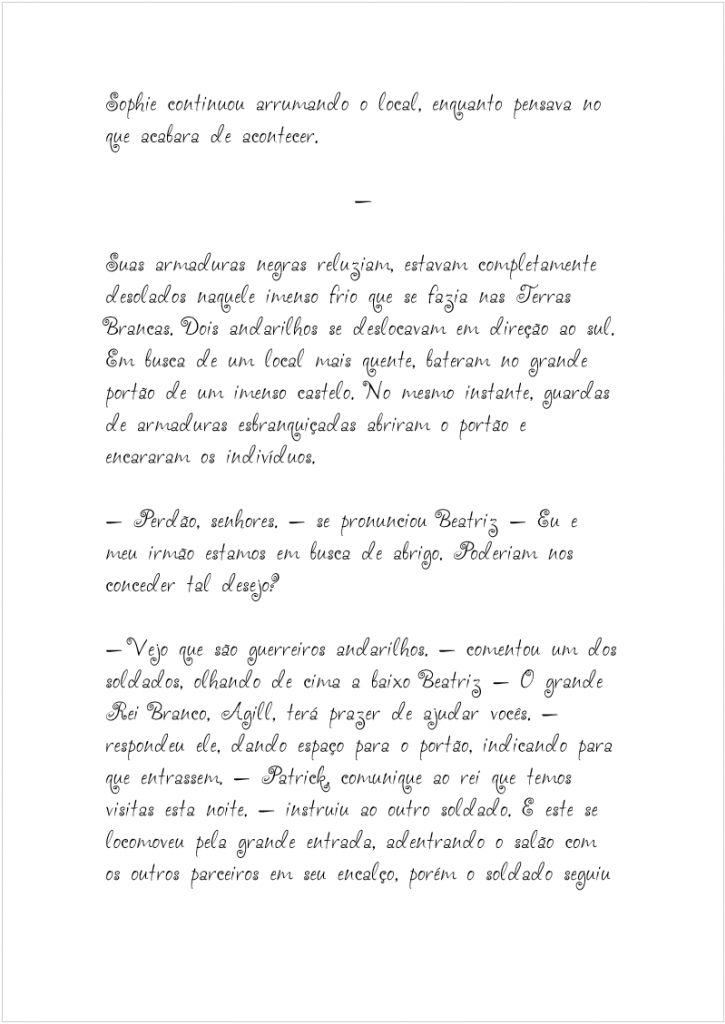 Sophie continuou arrumando o local, enquanto pensava no
que acabara de acontecer.
—
Suas armaduras negras reluziam, estavam completamente
desolados naquele imenso frio que se fazia nas Terras
Brancas. Dois andarilhos se deslocavam em direção ao sul.
Em busca de um local mais quente, bateram no grande
portão de um imenso castelo. No mesmo instante, guardas
de armaduras esbranquiçadas abriram o portão e
encararam os indivíduos.
— Perdão, senhores. — se pronunciou Beatriz — Eu e
meu irmão estamos em busca de abrigo. Poderiam nos
conceder tal desejo?
— Vejo que são guerreiros andarilhos. — comentou um dos
soldados, olhando de cima a baixo Beatriz — O grande
Rei Branco, Agill, terá prazer de ajudar vocês. —
respondeu ele, dando espaço para o portão, indicando para
que entrassem. — Patrick, comunique ao rei que temos
visitas esta noite. — instruiu ao outro soldado. E este se
locomoveu pela grande entrada, adentrando o salão com
os outros parceiros em seu encalço, porém o soldado seguiu